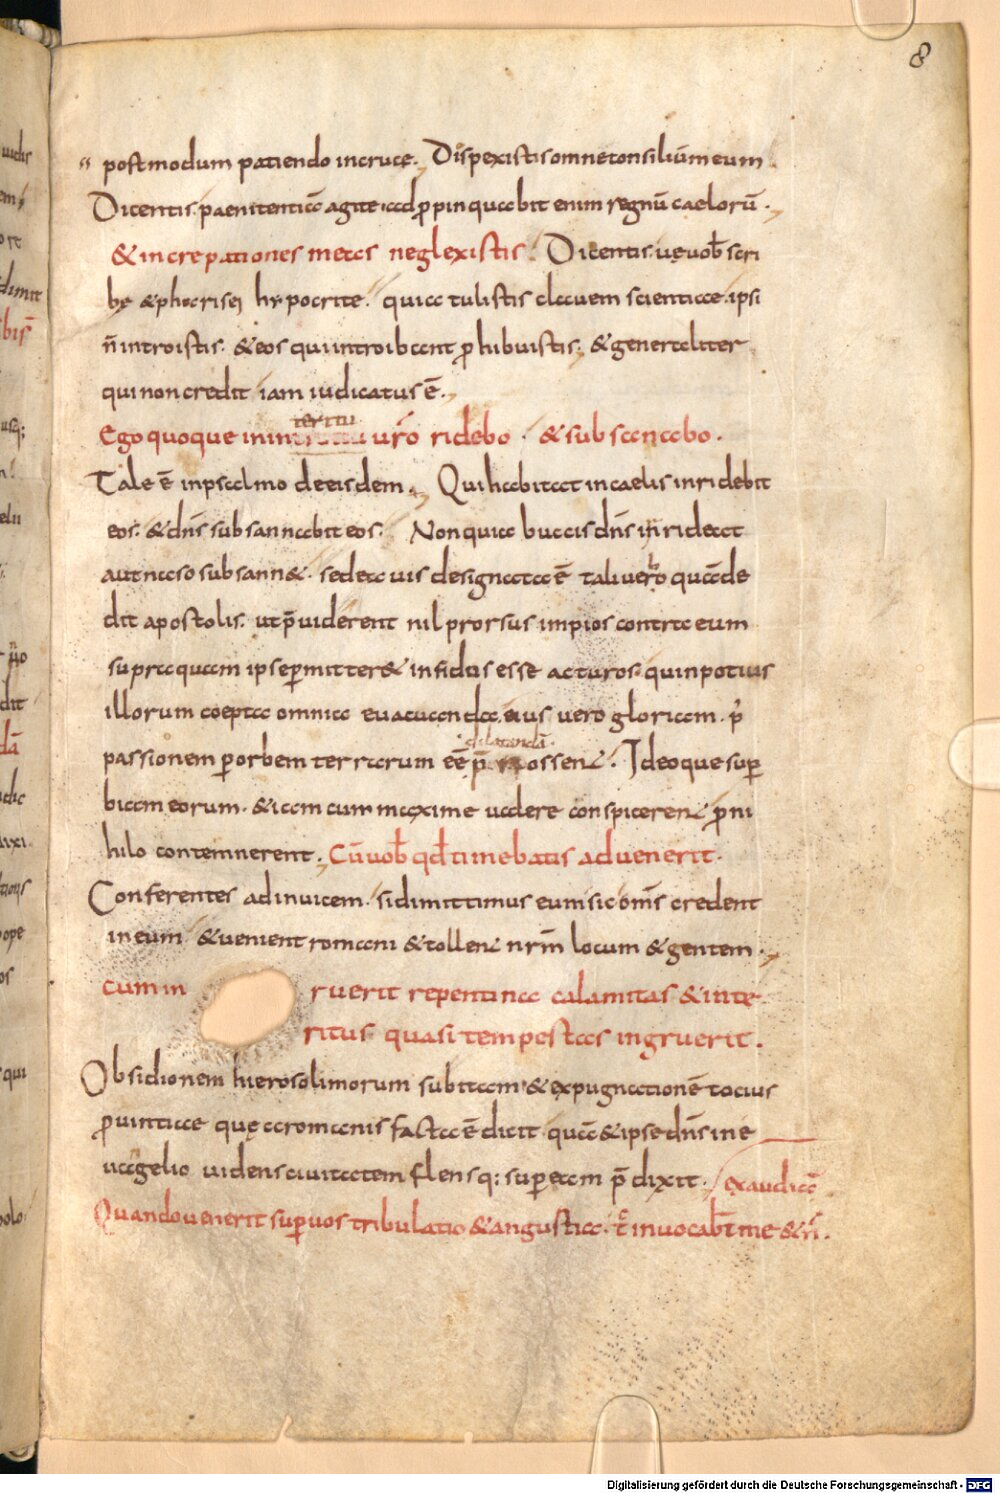 8
postmodum patiendo in cruce. Dispexistis omne consiliū meum.
Dicentis. paenitentiā agite. adp̄pinquabit enim regnū caelorū.
& increpationes meas neglexistis. Dicentis. uę uob̄ scri
bę & pharisęi hypocritę. quia tulistis clauem scientiae. ipsi
n̄ introistis. & eos qui introibant p̄hibuistis. & generaliter
qui non credit iam iudicatus ē.
Ego quoque in in ur̄o ridebo. & subsannabo.
Tale ē in psalmo de eisdem. Qui habitat in caelis inridebit
eos. & dn̄s subsannabit eos. Non quia buccis dn̄s inrideat
aut naso subsann&. sed ea uis designata ē tali uerbo quā de
dit apostolis. ut p̄uiderent nil prorsus impios contra eum
supra quam ipse p̄mitter& infidus esse acturos. quin potius
illorum coepta omnia euacuanda. eius uero gloriam. p̄
passionem p̄ orbem terrarum eē p̄ dilatandā. ossent. Ideoque sup̄
biam eorum. & iam cum maxime uadere conspicerent p̄ ni
hilo contemnerent. Cū uob̄ qđ timebatis aduenerit.
Conferentes ad inuicem. si dimittimus eum sic om̄s credent
in eum & uenient romani & tollent nr̄m locum & gentem.
cum in ruerit repentina calamitas & inte
ritus quasi tempestas ingruerit.
Obsidionem hierosolimorum subitam. & expugnationē tocius
p̄uintiae quę a romanis facta ē dicit quā & ipse dn̄s in e
uāgelio uidens ciuitatem flensq; sup̄ eam p̄dixit. exaudiā
Quando uenerit sup̄ uos tribulatio & angustia. t̄c inuocab̄t me & n̄.
Digitalisierung gefördert durch die Deutsche Forschungsgemeinschaft - DFG